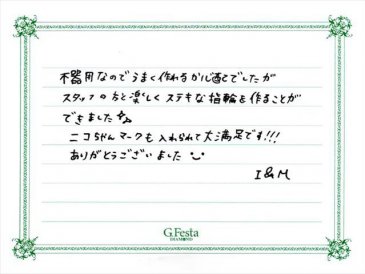 不器用なのでうまく作れるか心配でしたが
スタッフの方と楽しくステキな指輪を作ることが
できました
ニコちゃんマークも入れられて大満足です!!!
ありがとうございました
I&M
G.Festa
DIAMOND